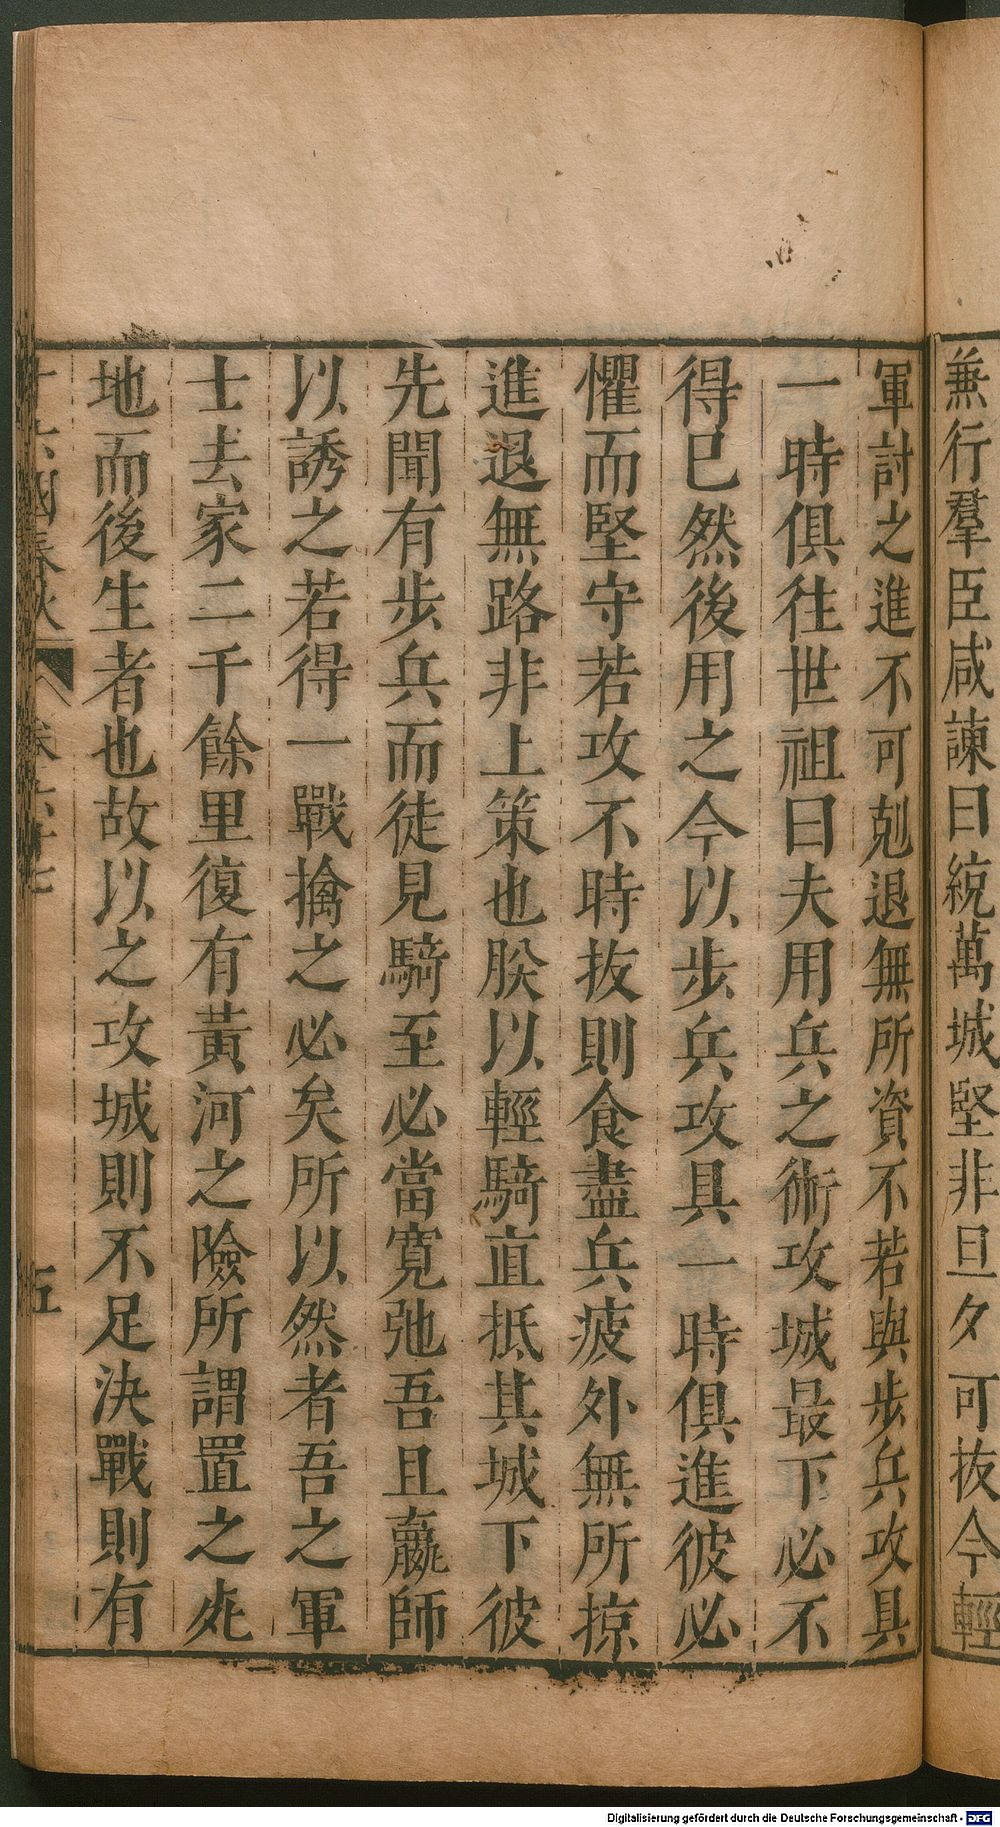 兼行羣臣咸諫曰統萬城堅非旦夕可抜今輕
軍討之進不可剋退無所資不若與步兵攻具
一時俱往世祖曰夫用兵之術攻城最下必不
得已然後用之今以步兵攻具一時俱進彼必
懼而堅守若攻不時抜則食盡兵疲外無所掠
進退無路非上策也朕以輕騎直抵其城下彼
先聞有步兵而徒見騎至必當寛弛吾且羸師
以誘之若得一戰擒之必矣所以然者吾之軍
士去家二千餘里復有黃河之險所謂置之死
地而後生者也故以之攻城則不足決戰則有
十六國春秋 卷六十七 五
Digitalisierung gefördert durch die Deutsche Forschungsgemeinschaft - DFG